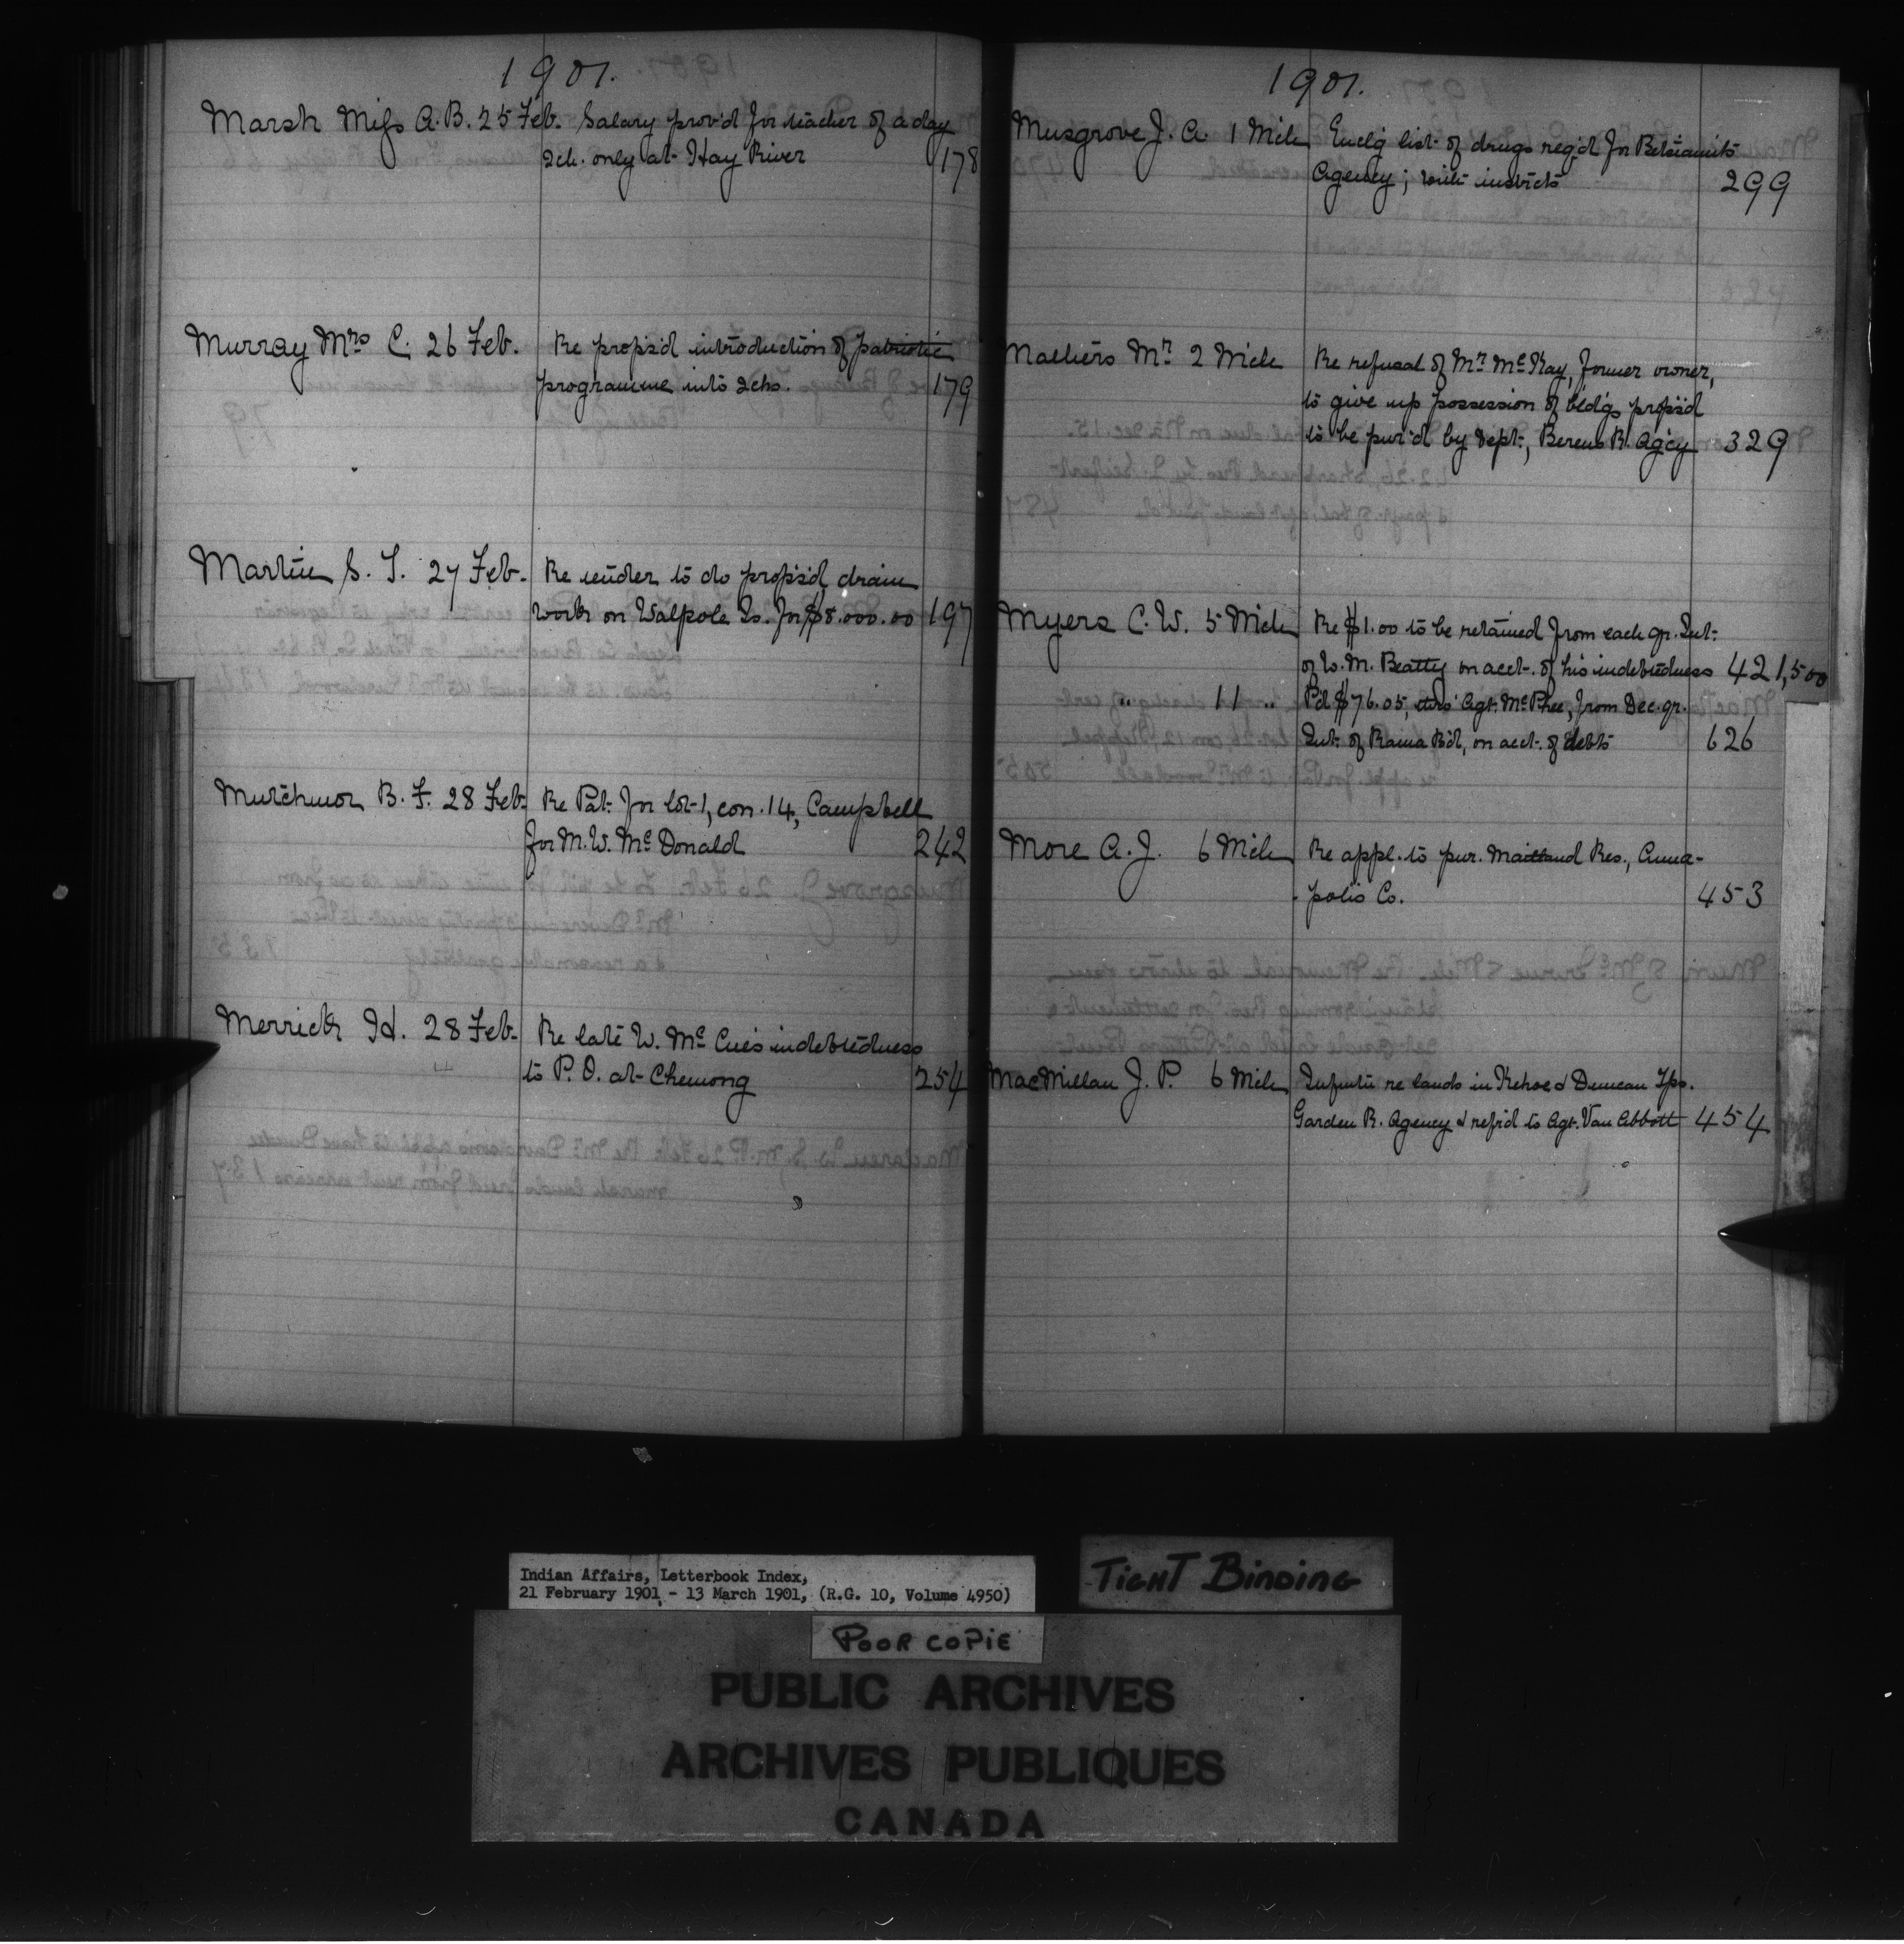 1901.
Marsh Miss A. B. 25 Feb. Salary prov'd for teacher of a day
Sch. only at Hay River 178
Murray Mrs C. 26 Feb. Re props'd introduction of patriotic
programme into Schs. 179
Martin S. T. 27 Feb. Re tender to do props'd drain
work on Walpole Is. for $8.000.00 197
Mutchmor B. F. 28 Feb. Re Pat. for lot 1, con. 14, Campbell
for M. W. McDonald 242
Merrick H. 28 Feb. Re late W. McCue's indebtedness
to P. O. at Chemong 254
1901.
Musgrove J. A. 1 Mch Encl'g list of drugs req'd for Betsiamits
Agency; with instrcts 299
Mathers Mr. 2 Mch Re refusal of Mr. McKay, former owner,
to give up possession of bld'gs props'd
to be pur'd by Dept., Berens R. Ag'cy 329
Myers C. W. 5 Mch Re $1.00 to be retained from each qr. Int.
of W. M. Beatty on acct. of his indebtedness 421,500
" 11 " P'd $76.05, thro' Agt. McPhee, from Dec. qr.
Int. of Rama B'd, on acct. of debts 626
More A. J. 6 Mch Re appl. to pur. Maitland Res., Anna-
polis Co. 453
MacMillan J. P. 6 Mch Inform re lands in Kehoe & Duncan Tps.
Garden R. Agency & ref'd to Agt. Van Abbott 454
Indian Affairs, Letterbook Index,
21 February 1901 - 13 March 1901, (R.G. 10, Volume 4950)
TIGHT BINDING
POOR COPIE
PUBLIC ARCHIVES
ARCHIVES PUBLIQUES
CANADA